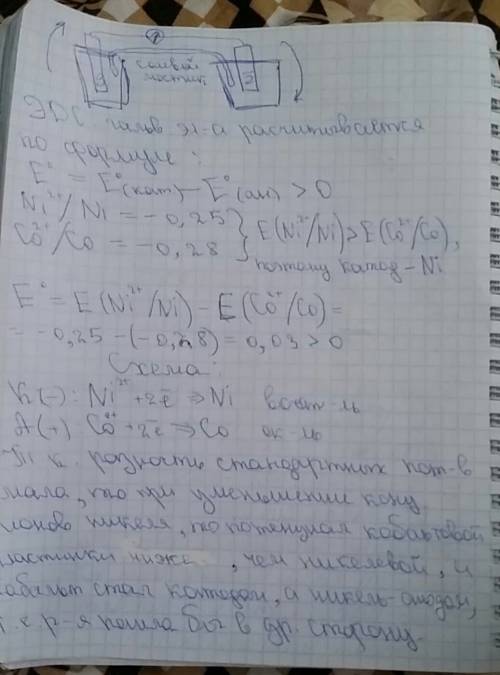 солевой
мостик
ЭДС галов эл-а расчитывается
по формуле:
E° = E°(кат) – E°(ан) > 0
Ni²⁺/Ni = –0,25 } E(Ni²⁺/Ni) > E(Co²⁺/Co),
Co²⁺/Co = –0,28 } поэтому катод – Ni
E° = E(Ni²⁺/Ni) – E(Co²⁺/Co) =
= –0,25 – (–0,28) = 0,03 > 0
Схема:
K(-): Ni²⁺ + 2ē ⇒ Ni
A(+) Co²⁺ + 2ē ⇒ Co ок-ль
Т. к. разность стандартных пот-в
мала, то при уменьшении конц.
ионов никеля, то потенциал кобальтовой
пластинки ниже, чем никелевой, и
кобальт стал катодом, а никель-анодом,
т.е р-я пошла бы в др. сторону.